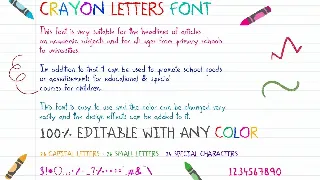 CRAYON LETTERS FONT
This font is very suitable for the headlines of articles
on academic subjects and for all ages from primary schools
to universities.
In addition to that it can be used to promote school goods
or advertisements for educational & special
courses for children.
This font is easy to use and the color can be changed very
easily and the design effects can be added to it.
100% EDITABLE WITH ANY COLOR
26 CAPITAL LETTERS 26 SMALL LETTERS 26 SPECIAL CHARACTERS
1234567890